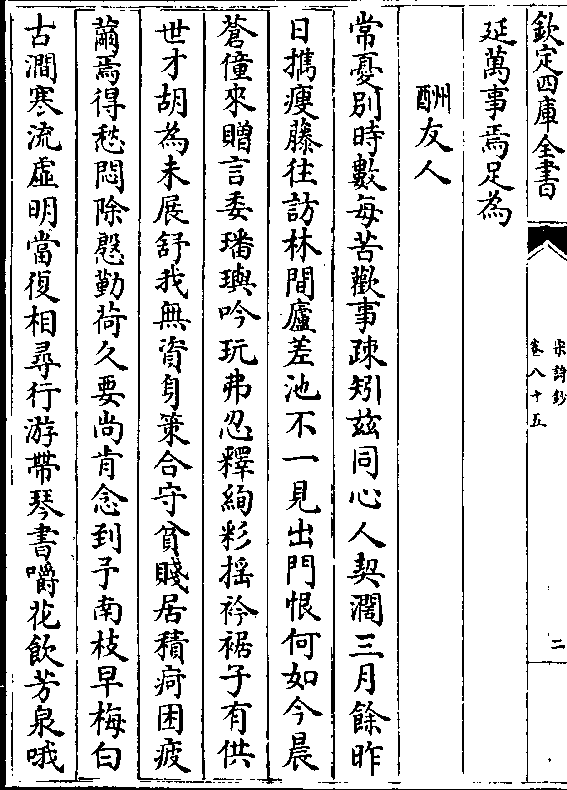 欽定四庫全書
宋詩鈔
卷八十五
二
延萬事焉足為
酬友人
常憂别時數每苦歡事疎矧兹同心人契濶三月餘昨
日攜瘦藤往訪林間廬差池不一見出門恨何如今晨
蒼僮來贈言委璠璵吟玩弗忍釋絢彩摇衿裾子有供
世才胡為未展舒我無資身策合守貧賤居積疴困疲
薾焉得愁悶除慇勤荷久要尚肯念到予南枝早梅白
古澗寒流虚明當復相尋行游帶琴書嚼花飲芳泉哦